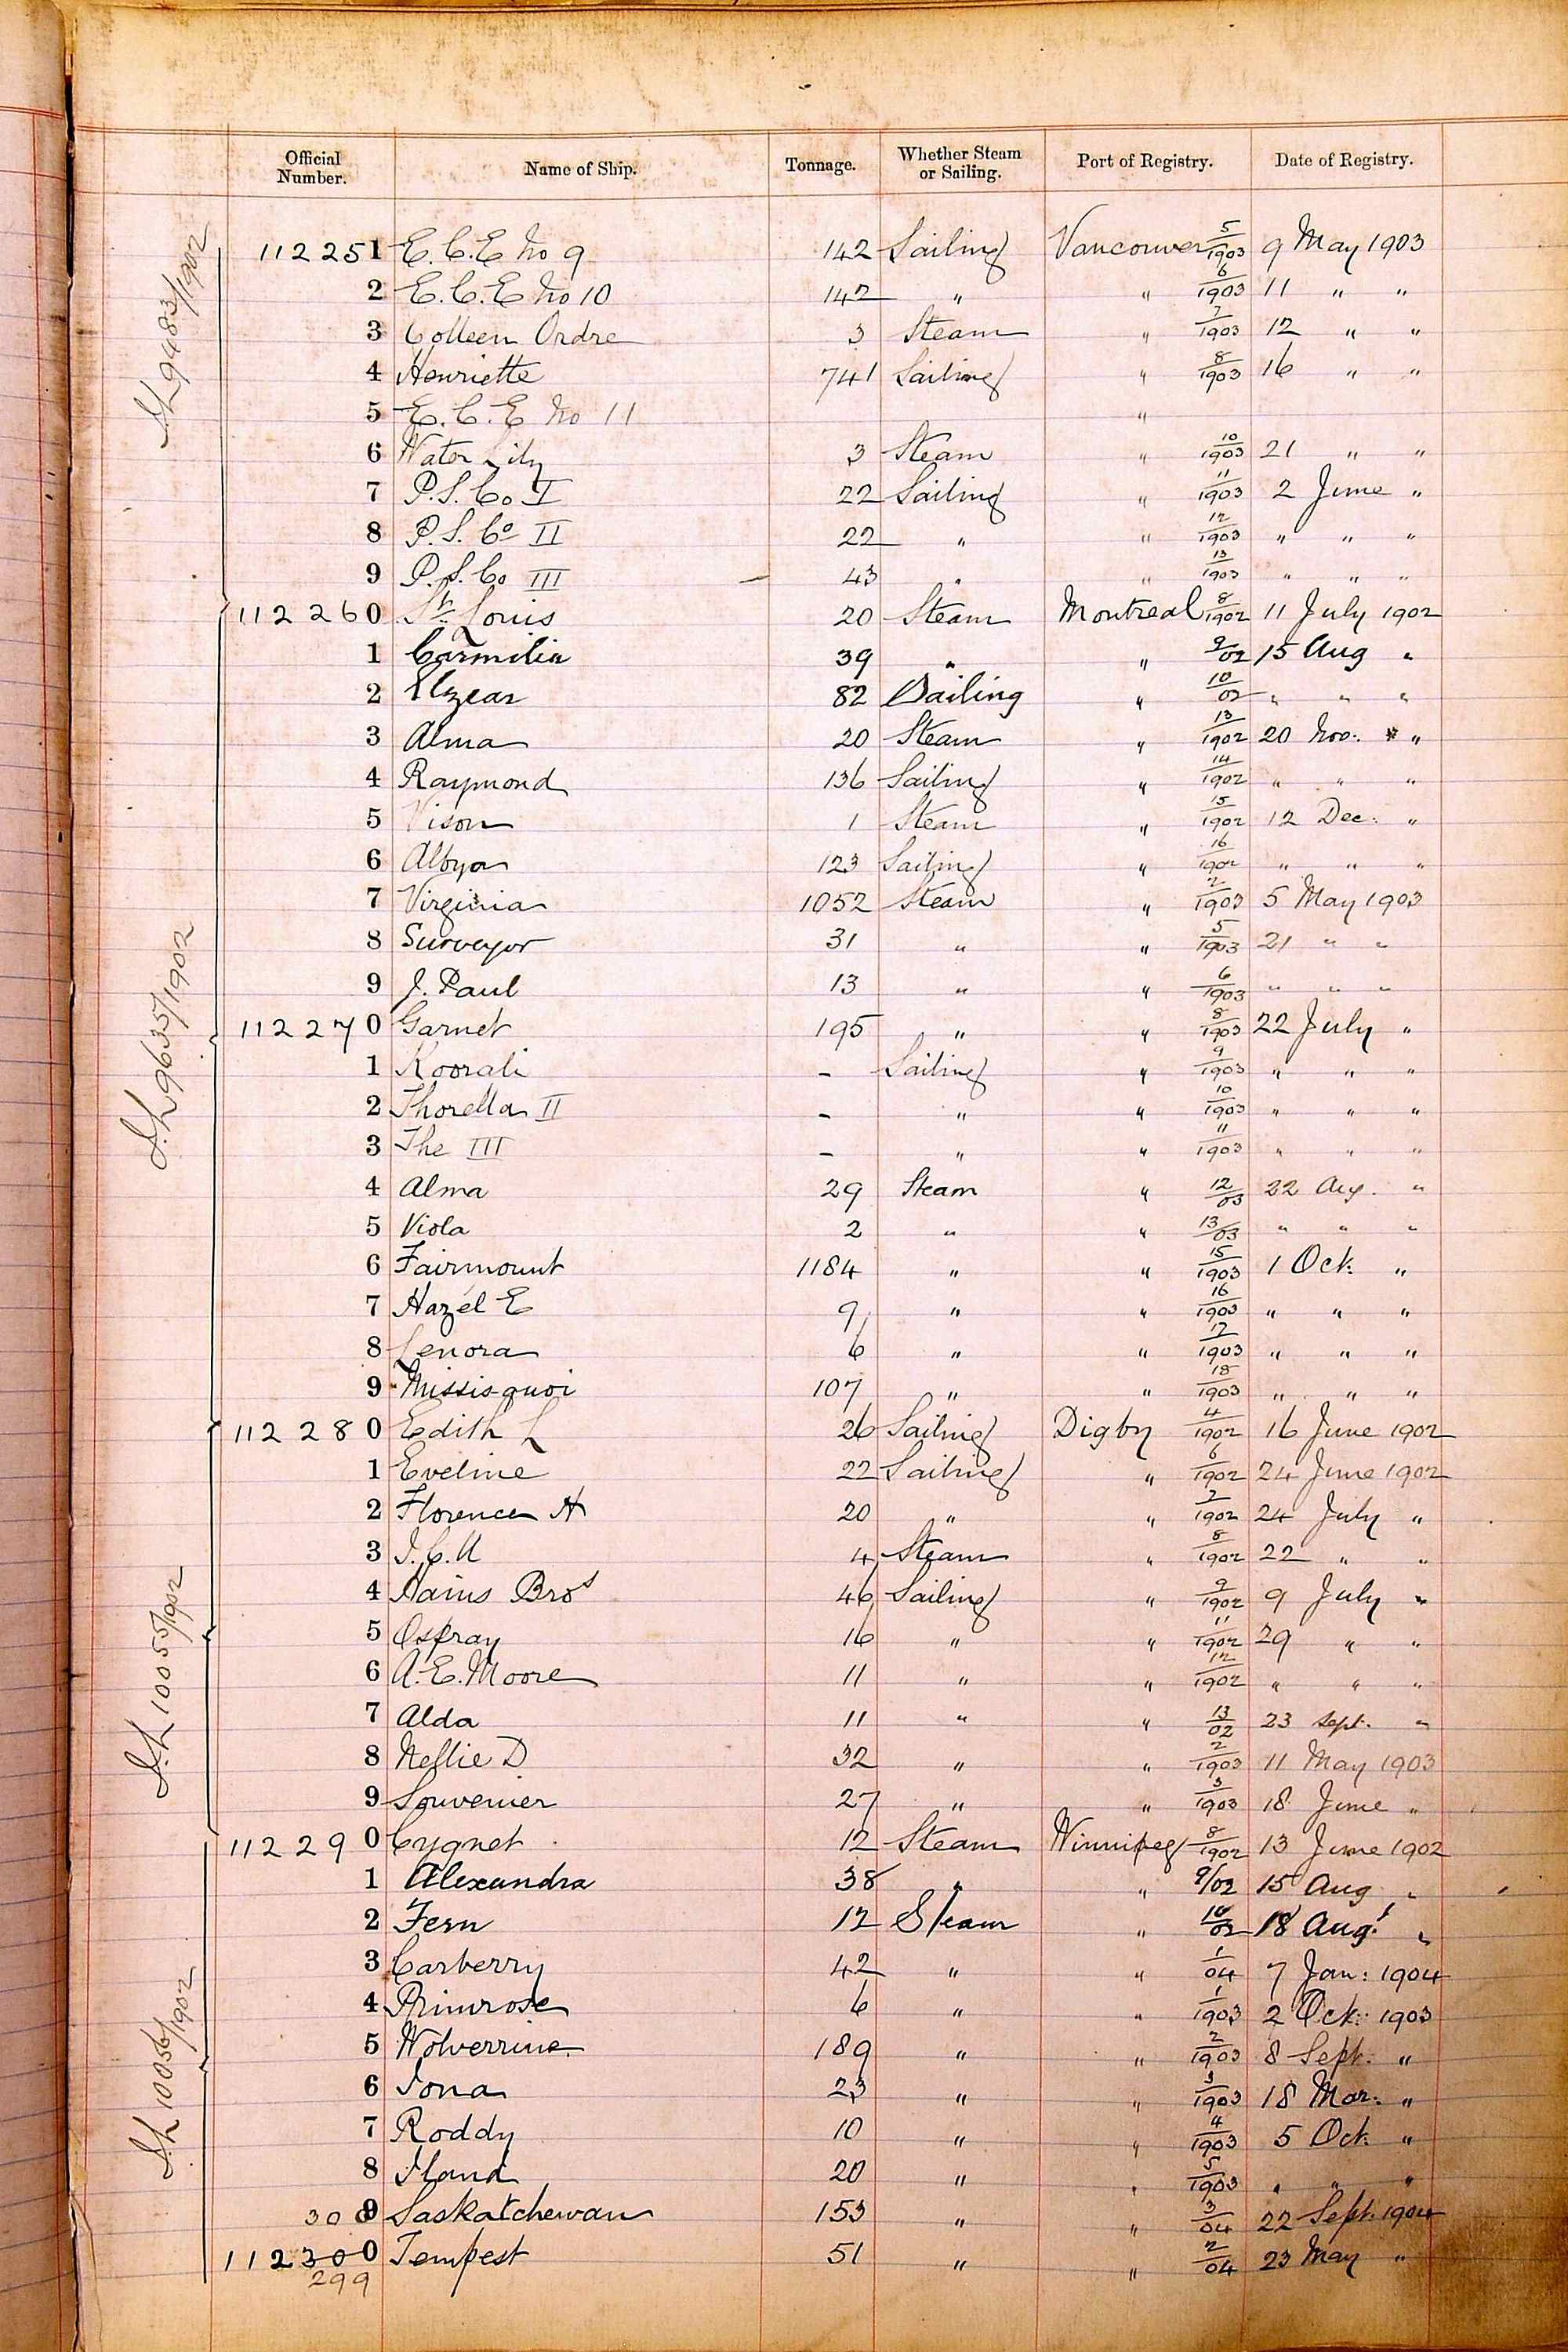 Official Number. Name of Ship. Tonnage. Whether Steam or Sailing. Port of Registry. Date of Registry.
112251 E.C.E No 9 142 Sailing Vancouver 5/1903 9 May 1903
2 E.C.E No 10 142 " " 6/1903 11 " "
3 Colleen Ordre 3 Steam " 7/1903 12 " "
4 Henriette 741 Sailing " 8/1903 16 " "
5 E.C.E No 11 "
6 Water Lily 3 Steam " 10/1903 21 " "
7 P.S. Co I 22 Sailing " 11/1903 2 June "
8 P.S. Co II 22 " " 12/1903 " " "
9 P.S. Co III 43 " " 13/1903 " " "
112260 St. Louis 20 Steam Montreal 8/1902 11 July 1902
1 Carmilia 39 " " 9/02 15 Aug "
2 Elzear 82 Sailing " 10/02 " " "
3 Alma 20 Steam " 13/1902 20 Nov: "
4 Raymond 136 Sailing " 14/1902 " " "
5 Vison 1 Steam " 15/1902 12 Dec: "
6 Albya 123 Sailing " 16/1902 " " "
7 Virginia 1052 Steam " 2/1903 5 May 1903
8 Surveyor 31 " " 5/1903 21 " "
9 J. Paul 13 " " 6/1903 " " "
112270 Garnet 195 " " 8/1903 22 July "
1 Koorali – Sailing " 9/1903 " " "
2 Thorella II – " " 10/1903 " " "
3 The III – " " 11/1903 " " "
4 Alma 29 Steam " 12/03 22 Aug. "
5 Viola 2 " " 13/03 " " "
6 Fairmount 1184 " " 15/1903 1 Oct: "
7 Hazel E 9 " " 16/1903 " " "
8 Lenora 6 " " 17/1903 " " "
9 Missisquoi 107 " " 18/1903 " " "
112280 Edith L 26 Sailing Digby 4/1902 16 June 1902
1 Eveline 22 Sailing " 6/1902 24 June 1902
2 Florence A 20 " " 7/1902 24 July "
3 4 Steam " 8/1902 22 " "
4 Hains Bros 46 Sailing " 9/1902 9 July "
5 Ospray 16 " " 11/1902 29 " "
6 A.E. Moore 11 " " 12/1902 " " "
7 Alda 11 " " 13/02 23 Sept. "
8 Nellie D 32 " " 2/1903 11 May 1903
9 Souvenier 27 " " 3/1903 18 June "
112290 Cygnet 12 Steam Winnipeg 8/1902 13 June 1902
1 Alexandra 38 " " 9/02 15 Aug "
2 Fern 12 Steam " 10/02 18 Aug' "
3 Carberry 42 " " 1/04 7 Jan: 1904
4 Primrose 6 " " 1/1903 2 Oct: 1903
5 Wolverrine 189 " " 2/1903 8 Sept. "
6 Iona 23 " " 3/1903 18 Mar: "
7 Roddy 10 " " 4/1903 5 Oct. "
8 Iland 20 " " 5/1903 " " "
300 9 Saskatchewan 153 " " 3/04 22 Sept. 1904
112300 Tempest 51 " " 2/04 23 May "
299
S.L 9483/1902
S.L 9635/1902
S.L 10055/1902
S.L 10056/1902